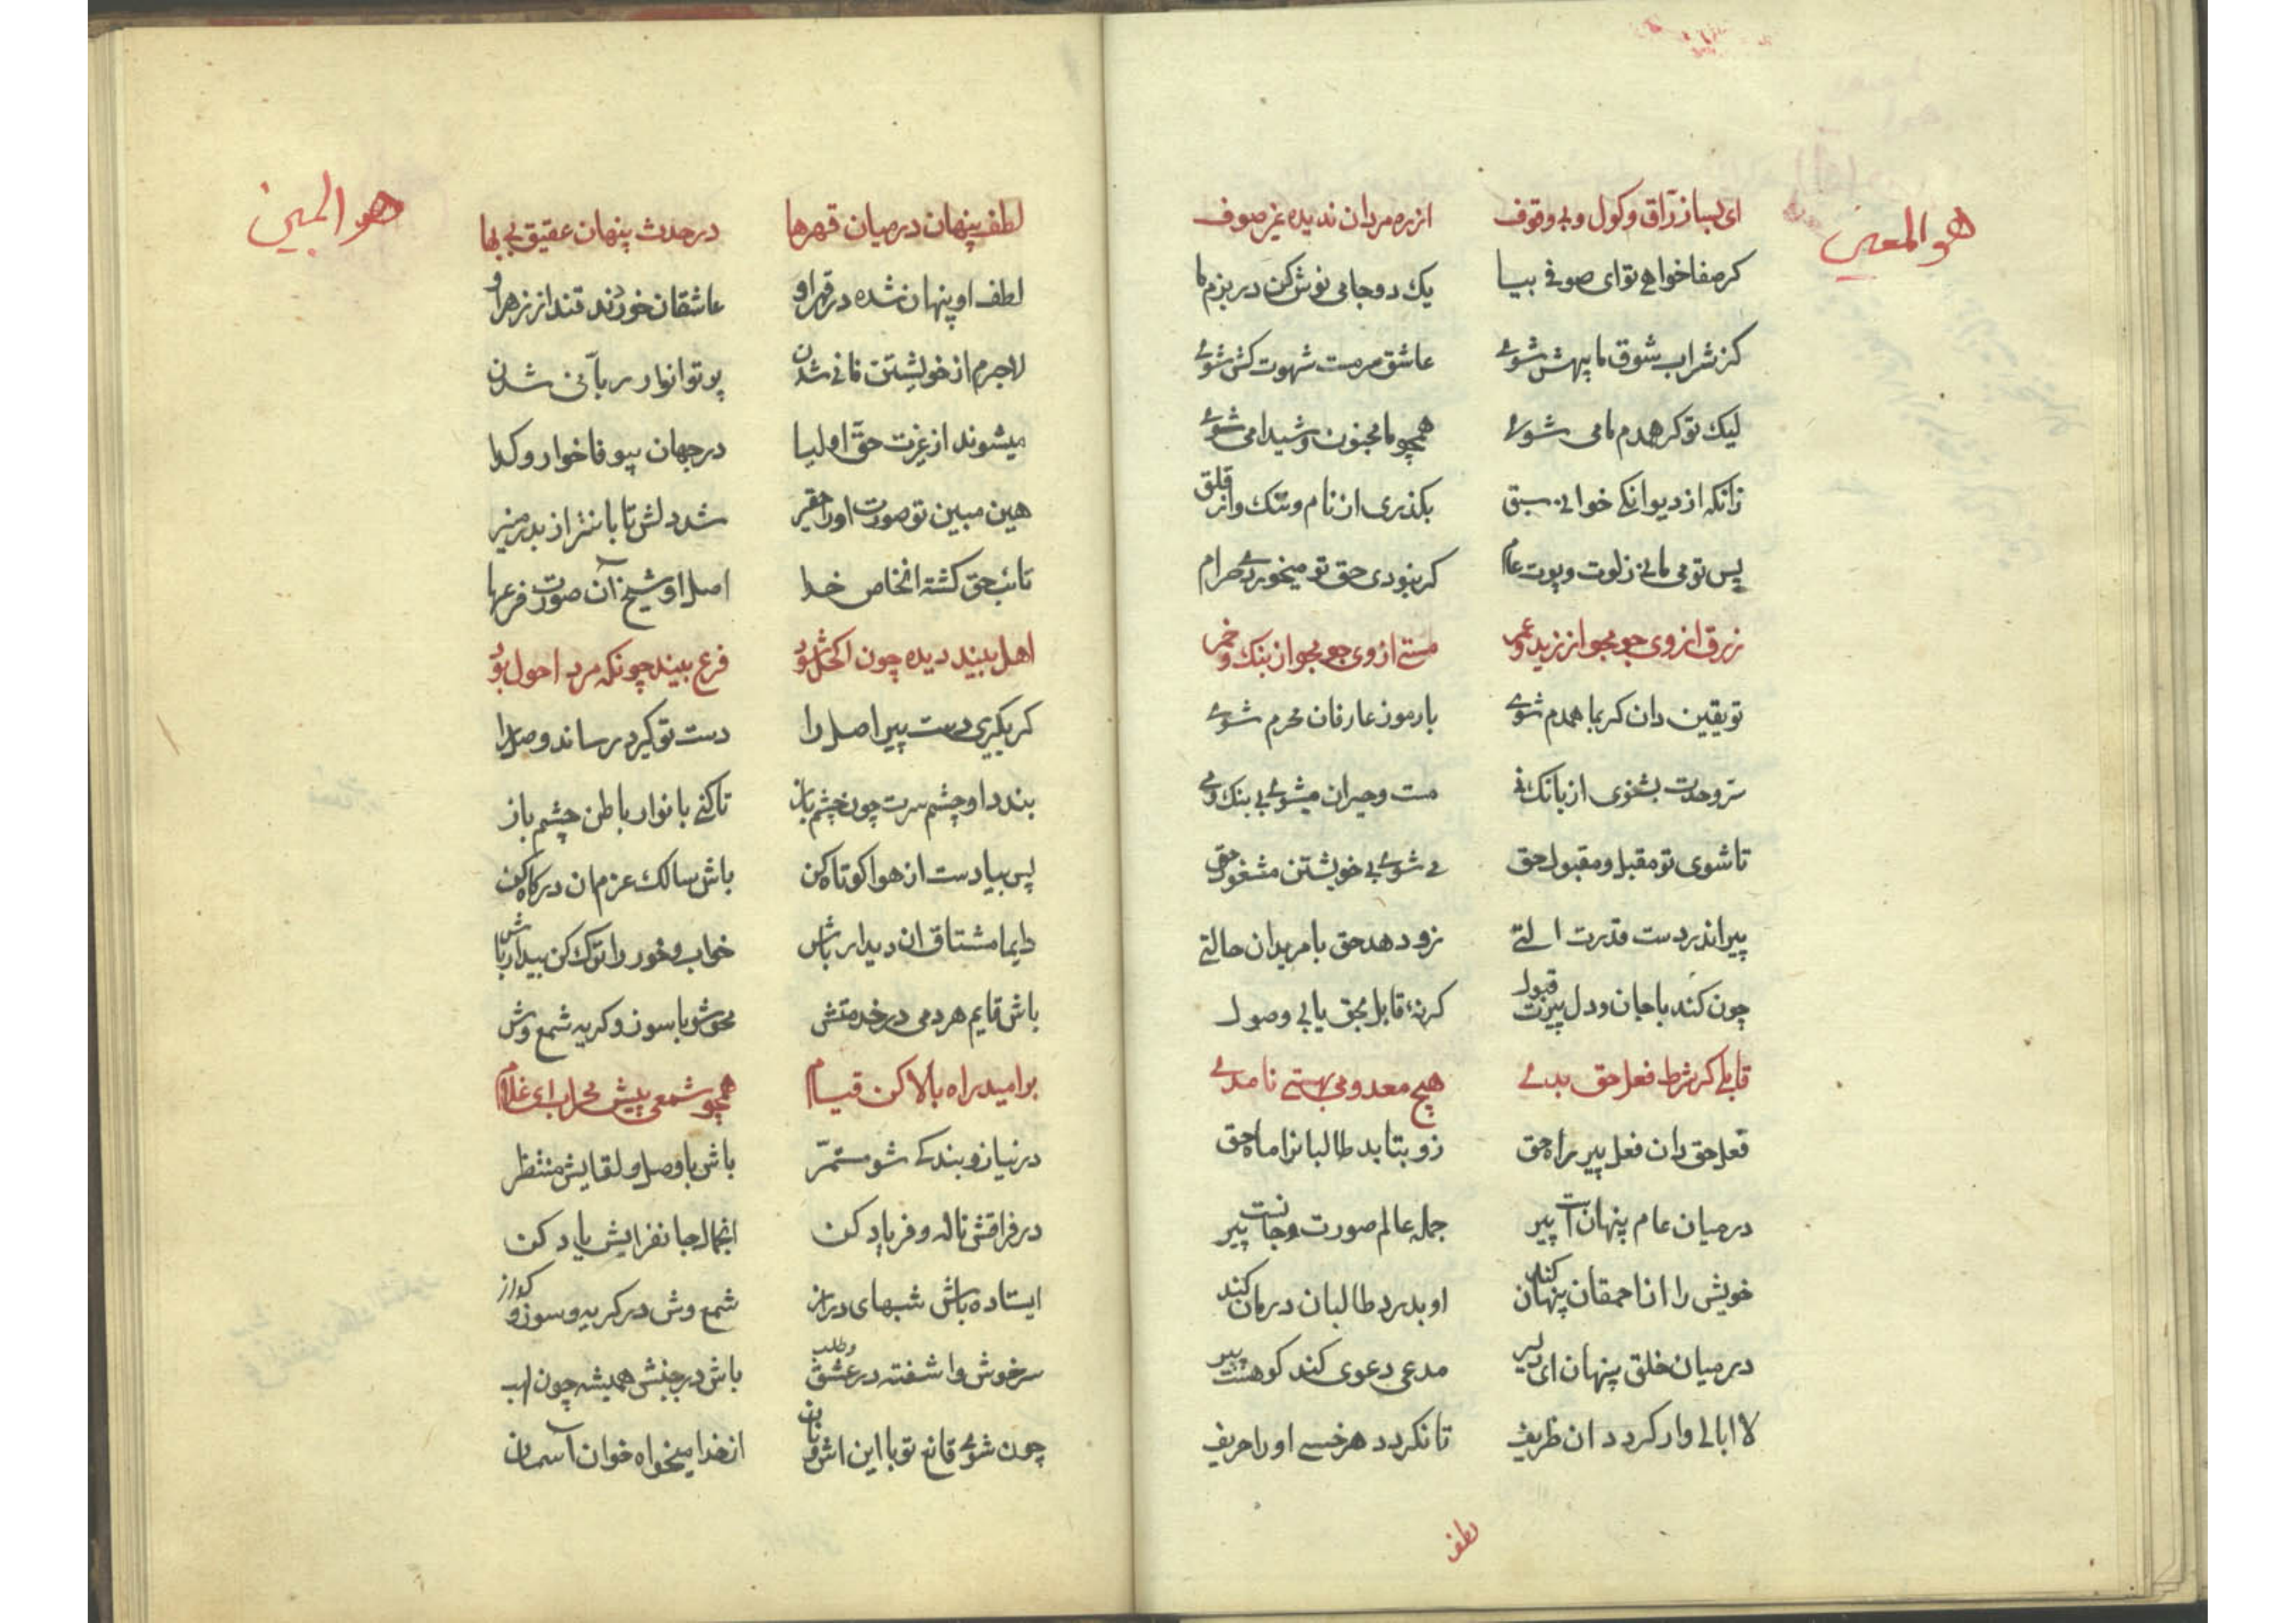 هو المعین
ای بسا زراق و کول و بی وقوف از ره مردان ندیده غیر صوف
کر صفا خواهی تو ای صوفی بیا یک دو جامی نوش کن در بزم ما
کز شراب شوق ما بیهش شوی عاشق سرمست شهوت کش شوی
لیک تو کر همدم ما می شوی همچو ما مجنون و شیدا می شوی
زانکه از دیوانکی خوانی سبق بکذری از نام و ننک و از قلق
پس تو می مانی ز لوت و پوت عام کر بنودی حق تو میخوردی حرام
زرق از وی جو مجو از زید و عمر مستی از وی جو مجو از بنک و خمر
تو یقین دان کر بما همدم شوی با رموز عارفان محرم شوی
سر وحدت بشنوی از بانک نی مست و حیران میشوی بی بنک و می
تا شوی تو مقبل و مقبول حق می شوی بی خویشتن مشغول حق
پیر اندر دست قدرت التی زو دهد حق با مریدان حالتی
چون کند با جان و دل پیرت قبول کر نهٔ قابل بحق یابی وصول
قابلی کر شرط فعل حق بدی هیچ معدومی بهستی نامدی
فعل حق دان فعل پیر راه حق زو بتابد طالبانرا ماه حق
درمیان عام پنهان است پیر جمله عالم صورت و جانست پیر
خویش را از احمقان پنهان کند او بدرد طالبان درمان کند
درمیان خلق پنهان ای دلیر مدعی دعوی کند کو هست پیر
لا ابالی وار کردد ان ظریف تا نکردد هر خسی او را حریف
لطف
هو المبین
لطف پنهان درمیان قهرها در حدث پنهان عقیق بی بها
لطف او پنهان شده در قهر او عاشقان خوردند قند از زهر او
لاجرم از خویشتن فانی شدن پرتو انوار ربانی شدن
میشوند از غیرت حق اولیا در جهان بیوفا خوار و کدا
هین مبین تو صورت او را حقیر شد دلش تابانتر از بدر منیر
تائب حق کشته انخاص خدا اصل او شیخ آن صورت فرعها
اصل بیند دیده چون اکحل بود فرع بیند چونکه مرد احول بود
کر بکیری دست پیر اصل را دست تو کیرد رساند وصل را
بندد او چشم سرت چون چشم باز تا کنی با نوار باطن چشم باز
پس بیا دست از هوا کوتاه کن باش سالک عزم ان درکاه کن
دایما مشتاق ان دیدار باش خواب و خور را ترک کن بیدار باش
باش قایم هر دمی در خدمتش محو شو با سوز و کریه شمع وش
بر امید راه بالا کن قیام همچو شمعی پیش محراب ای غلام
در نیاز و بندکی شو مستمر باش با وصل و لقایش منتظر
در فراقش ناله و فریاد کن انجمال جانفزایش یاد کن
ایستاده باش شبهای دراز شمع وش در کریه و سوز و کداز
سرخوش و اشفته در عشق و طلب باش در جنبش همیشه چون لهب
چون شوی قانع تو با این اش و نان از خدا میخواه خوان آسمان